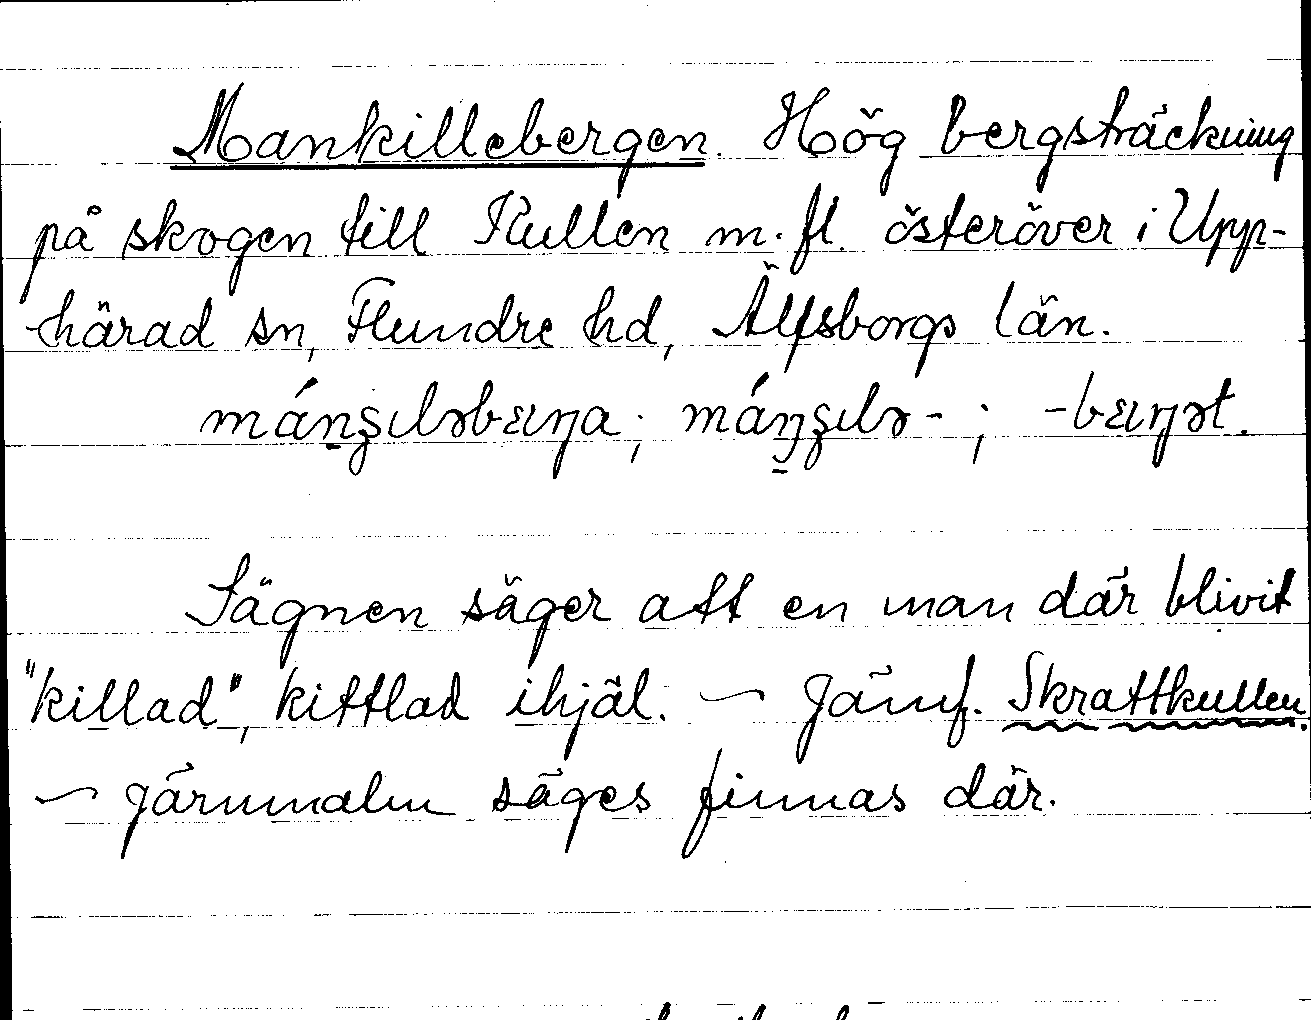 Mankillebergen. Hög bergsträckning
på skogen till Kullen m. fl. österöver i Upp-
härad sn, Flundre hd, Älfsborgs län.
Sägnen säger att en man där blivit
"killad", kittlad ihjäl. — Jämf. Skrattkullen.
— Järnmalm säges finnas där.